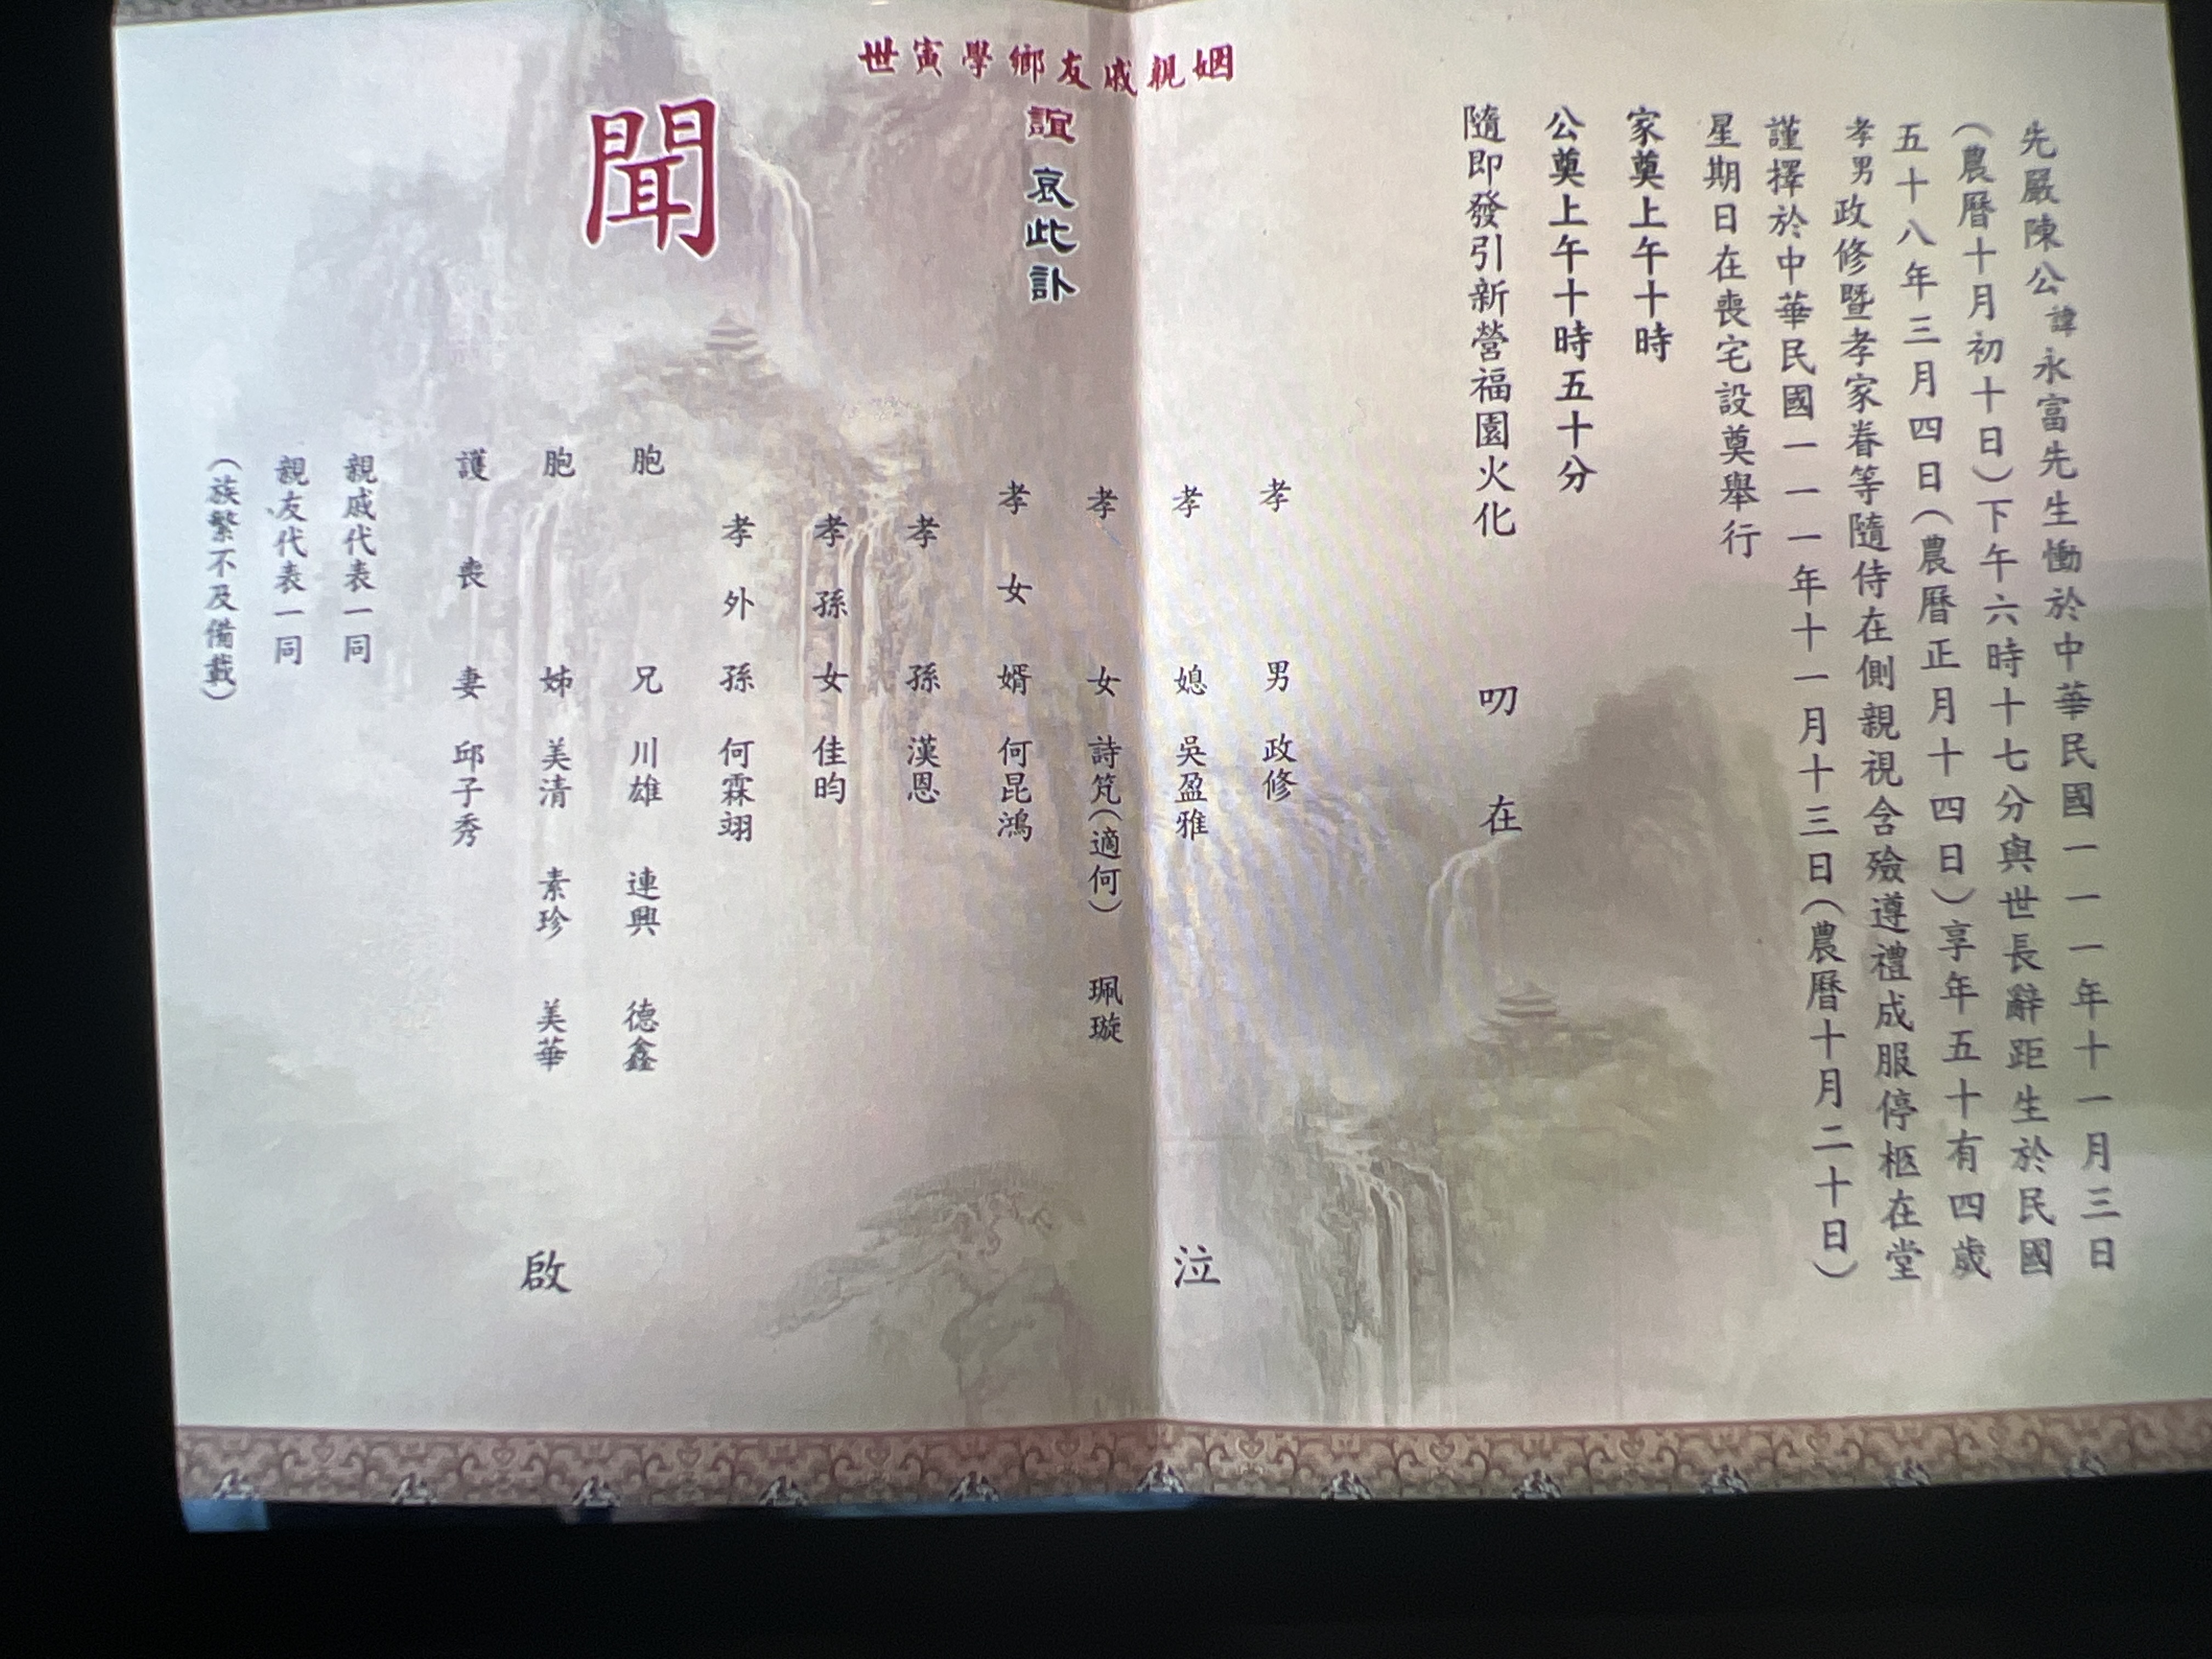 先嚴陳公諱永富先生慟於中華民國一一一年十一月三日
(農曆十月初十日)下午六時十七分與世長辭距生於民國
五十八年三月四日(農曆正月十四日)享年五十有四歲
孝男政修暨孝家眷等隨侍在側親視含殮遵禮成服停柩在堂
謹擇於中華民國一一一年十一月十三日(農曆十月二十日)
星期日在喪宅設奠舉行
家奠上午十時
公奠上午十時五十分
隨即發引新營福園火化
叨在
姻親戚友鄉學寅世
誼 哀此訃
聞
孝男 政修
孝媳 吳盈雅
孝女 詩竼(適何) 珮璇
孝女婿 何昆鴻
孝孫 漢恩
孝孫女 佳昀
孝外孫 何霖翊
泣
胞兄 川雄 連興 德鑫
胞姊 美清 素珍 美華
護喪妻 邱子秀
啟
親戚代表一同
親友代表一同
(族繁不及備載)